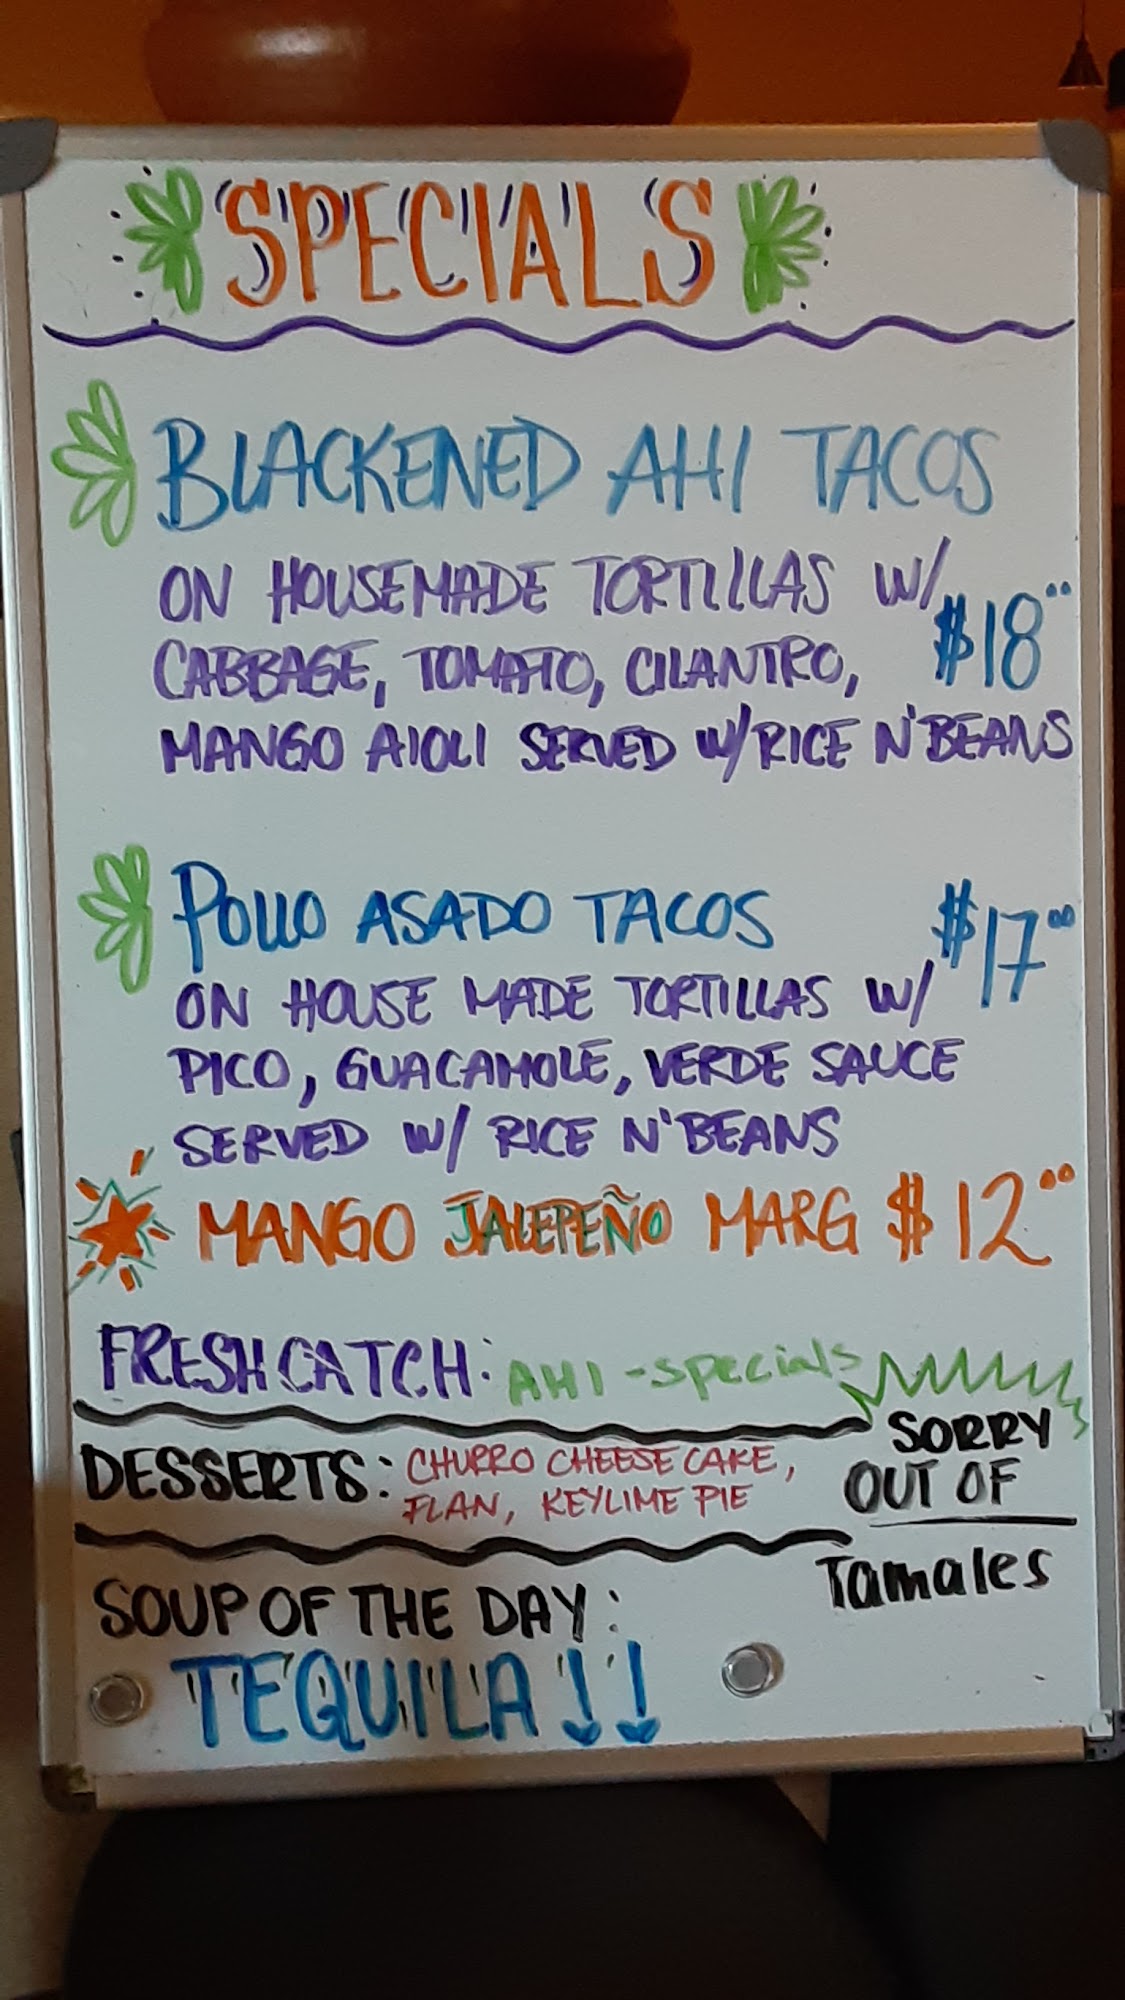 SPECIALS
BLACKENED AHI TACOS
ON HOUSEMADE TORTILLAS W/
$18⁰⁰
CABBAGE, TOMATO, CILANTRO,
MANGO AIOLI SERVED W/RICE N'BEANS
POLLO ASADO TACOS $17⁰⁰
ON HOUSE MADE TORTILLAS W/
PICO, GUACAMOLE, VERDE SAUCE
SERVED W/ RICE N'BEANS
MANGO JALEPEÑO MARG $12⁰⁰
FRESH CATCH: AHI - specials
DESSERTS: CHURRO CHEESE CAKE,
FLAN, KEYLIME PIE
SORRY
OUT OF
Tamales
SOUP OF THE DAY:
TEQUILA!!